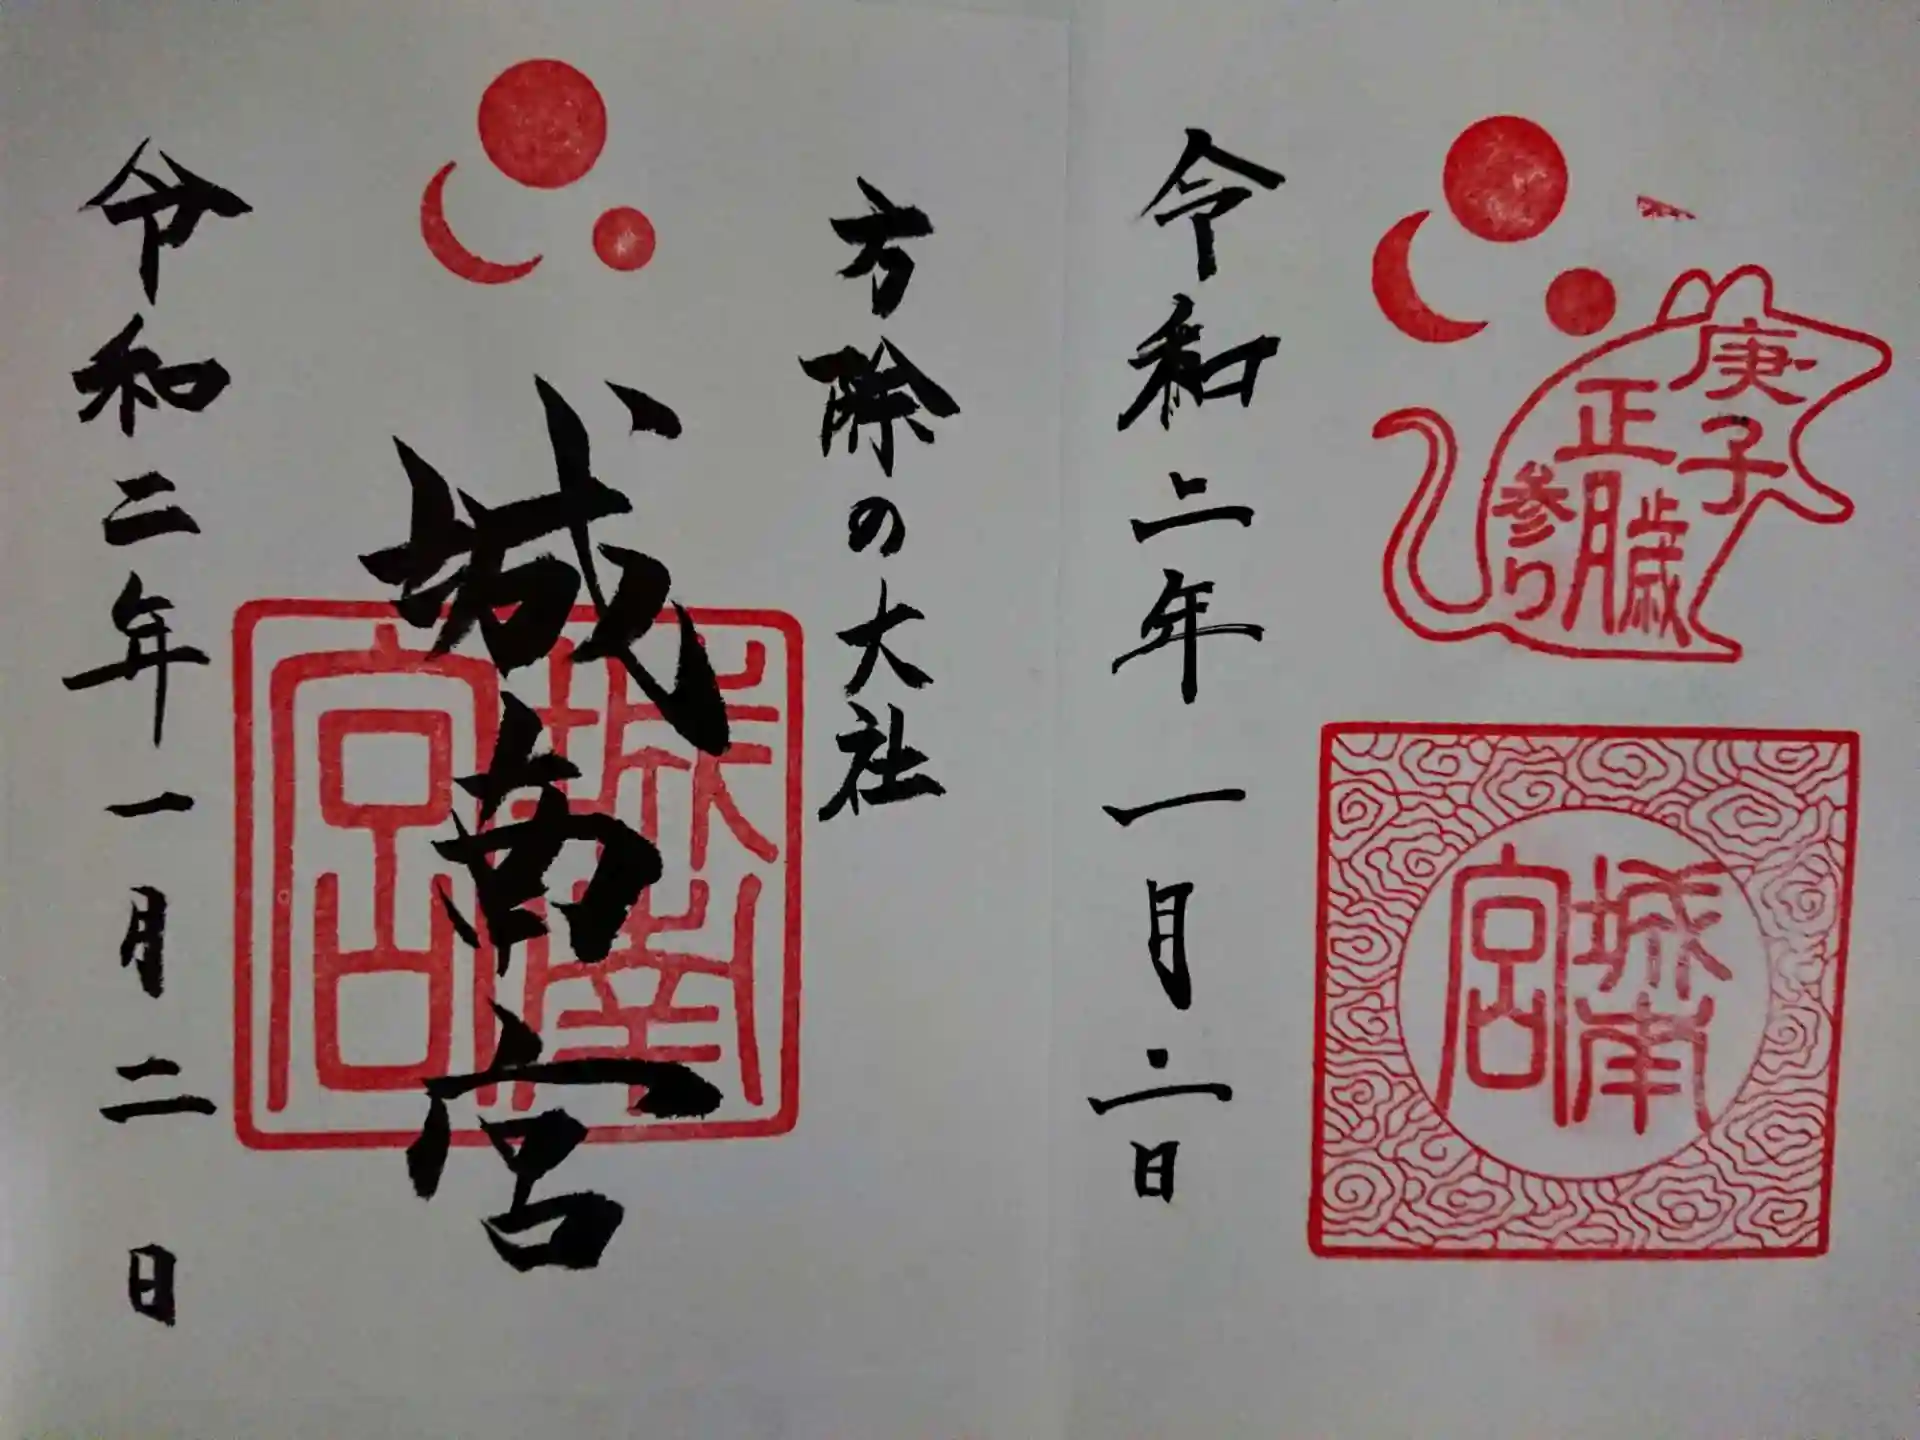 方除の大社
城南宮
城南宮
令和二年一月二日
庚子歳
正月
参り
城南宮
令和二年一月二日